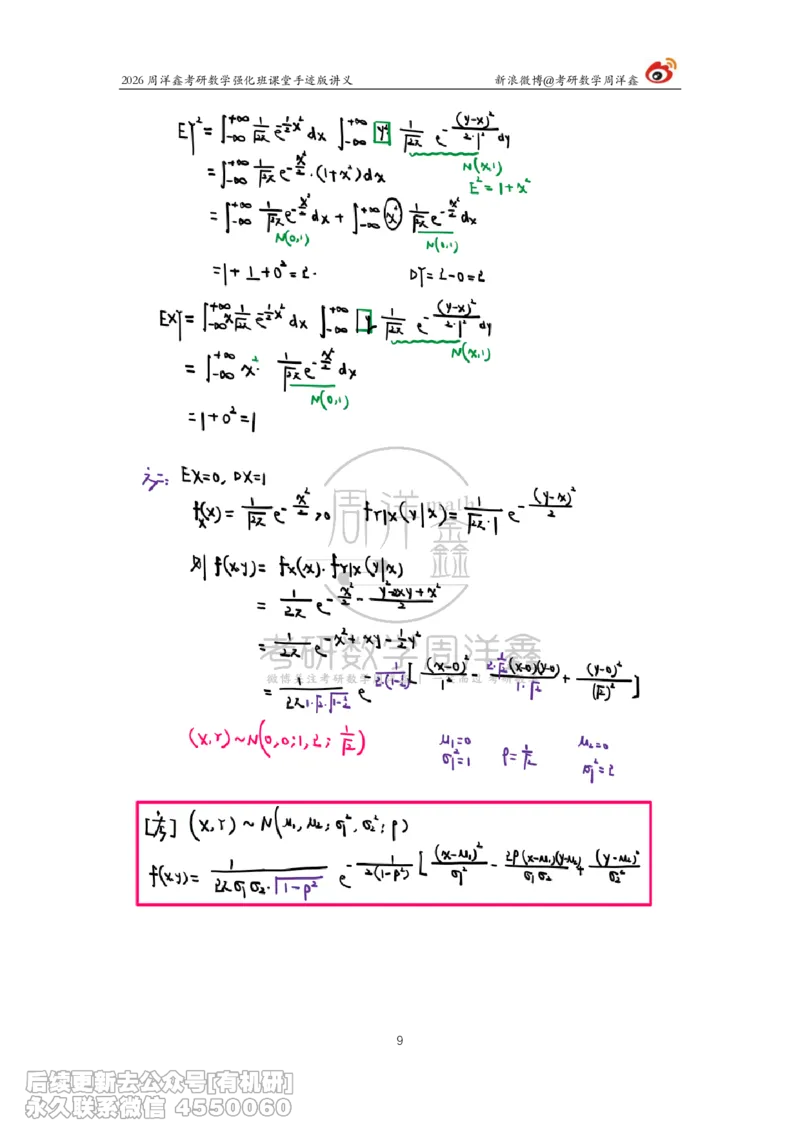 2026 周洋鑫考研数学强化班课堂手迹版讲义 新浪微博@考研数学周洋鑫
EY² = ∫_{-∞}^{+∞} 1/√2π e^{-1/2 x²} dx ∫_{-∞}^{+∞} y² 1/√2π e^{-(y-x)²/2·1²} dy
N(x,1)
= ∫_{-∞}^{+∞} 1/√2π e^{-x²/2}·(1+x²)dx
E² = 1+x²
= ∫_{-∞}^{+∞} 1/√2π e^{-x²/2} dx + ∫_{-∞}^{+∞} x² 1/√2π e^{-x²/2} dx
N(0,1) N(0,1)
= 1 + 1 + 0² = 2. DY = 2-0 = 2
EXY = ∫_{-∞}^{+∞} x 1/√2π e^{-1/2 x²} dx ∫_{-∞}^{+∞} y 1/√2π e^{-(y-x)²/2·1²} dy
N(x,1)
= ∫_{-∞}^{+∞} x²· 1/√2π e^{-x²/2} dx
N(0,1)
= 1+0² = 1
法二: EX=0, DX=1
f_X(x) = 1/√2π e^{-x²/2}, f_{Y|X}(y|x) = 1/√2π·1 e^{-(y-x)²/2}
则 f(x,y) = f_X(x)·f_{Y|X}(y|x)
= 1/2π e^{-x²/2 - (y²-2xy+x²)/2}
= 1/2π e^{-x²+xy-1/2 y²}
= 1/(2π·1·√2·√1-1/2) e^{-1/2·(1-1/2)[(x-0)²/1² - 2·1/√2(x-0)(y-0)/1·√2 + (y-0)²/(√2)²]}
(X,Y)~N(0,0;1,2;1/√2) μ₁=0 σ₁²=1 ρ=1/√2 μ₂=0 σ₂²=2
[注] (X,Y)~N(μ₁,μ₂;σ₁²,σ₂²;ρ)
f(x,y) = 1/(2πσ₁σ₂·√1-ρ²) e^{-1/2(1-ρ²)[(x-μ₁)²/σ₁² - 2ρ(x-μ₁)(y-μ₂)/σ₁σ₂ + (y-μ₂)²/σ₂²]}
周洋鑫
math
考研数学周洋鑫
9
后续更新去公众号[有机研]
永久联系微信 4550060